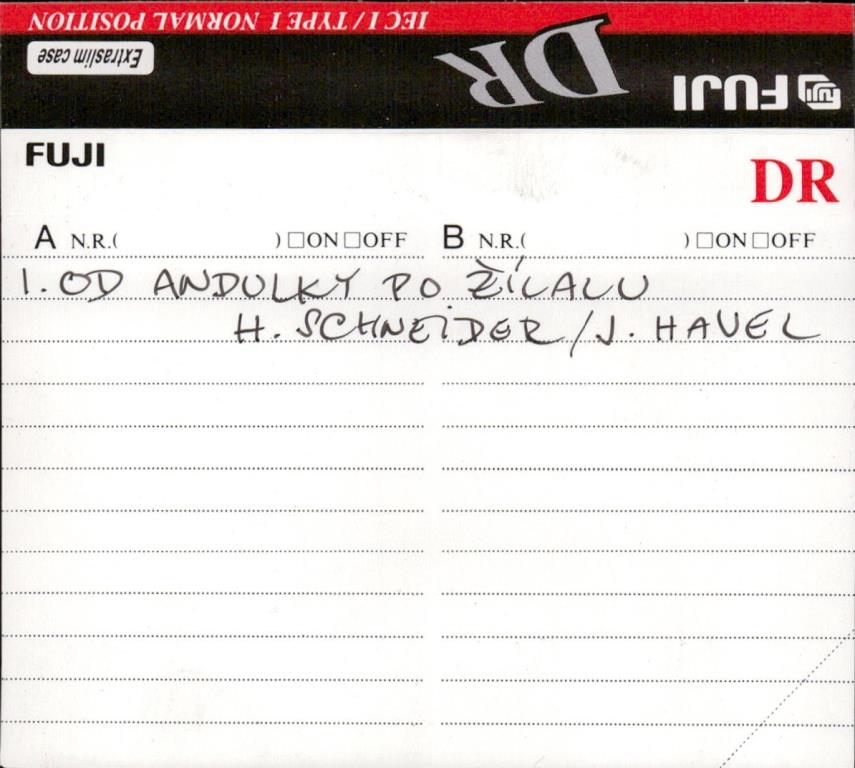 IEC I / TYPE I NORMAL POSITION
Extraslim case
DR
FUJI
FUJI
DR
A N.R.( ) □ON □OFF B N.R.( ) □ON □OFF
1. OD ANDULKY PO ŽÍLALU
H. SCHNEIDER / J. HAVEL